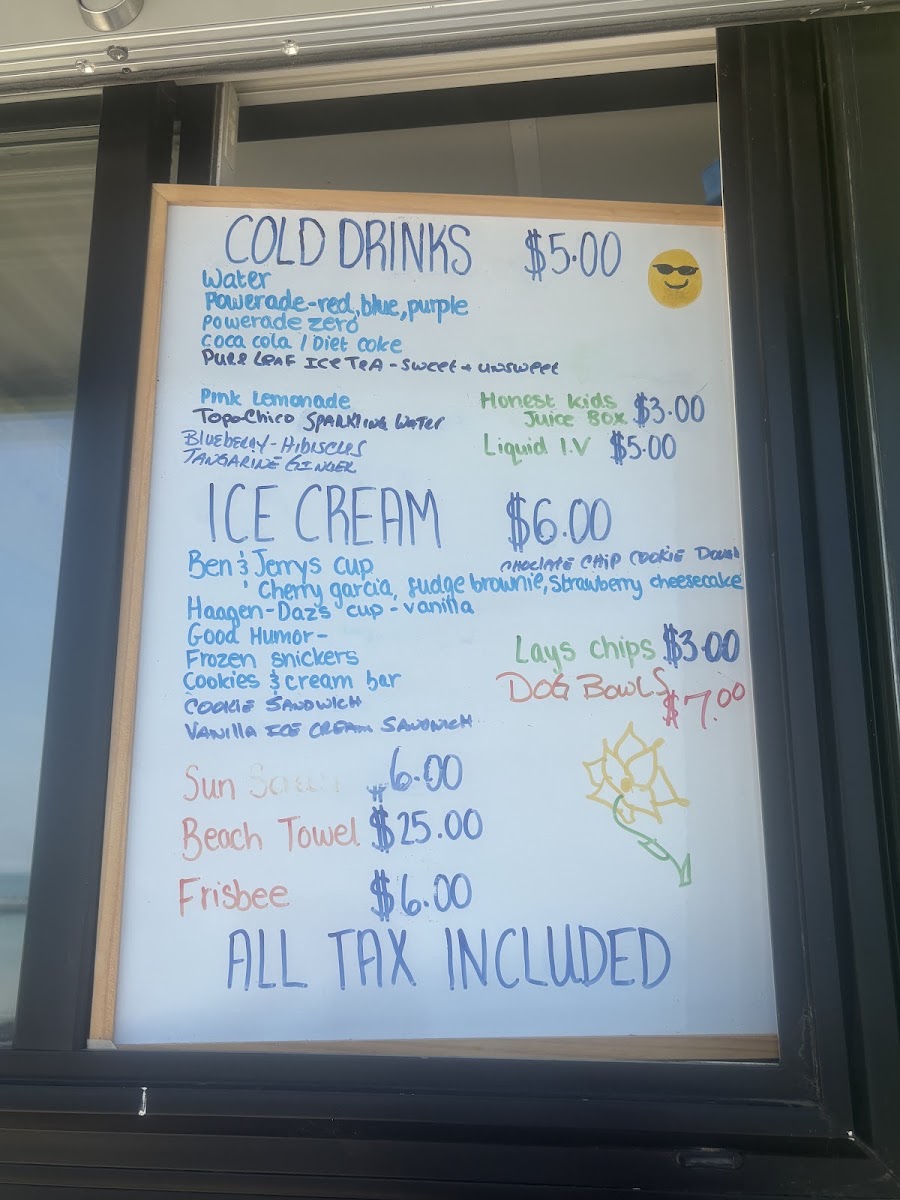 COLD DRINKS $5.00
Water
Powerade-red, blue, purple
Powerade zero
Coca cola / Diet coke
PURE LEAF ICE TEA - SWEET + UNSWEET
Pink Lemonade
TOPO-CHICO SPARKLING WATER
BLUEBERRY - HIBISCUS
TANGARINE GINGER
Honest kids
Juice Box $3.00
Liquid I.V $5.00
ICE CREAM $6.00
Ben & Jerrys cup
CHOCLATE CHIP COOKIE DOUGH
' Cherry garcia, fudge brownie, strawberry cheesecake
Haagen-Daz's cup - vanilla
Good Humor-
Frozen snickers
Cookies & cream bar
COOKIE SANDWICH
VANILLA ICE CREAM SANDWICH
Lays chips $3.00
DOG BOWLS
$7.00
Sun $6.00
Beach Towel $25.00
Frisbee $6.00
ALL TAX INCLUDED